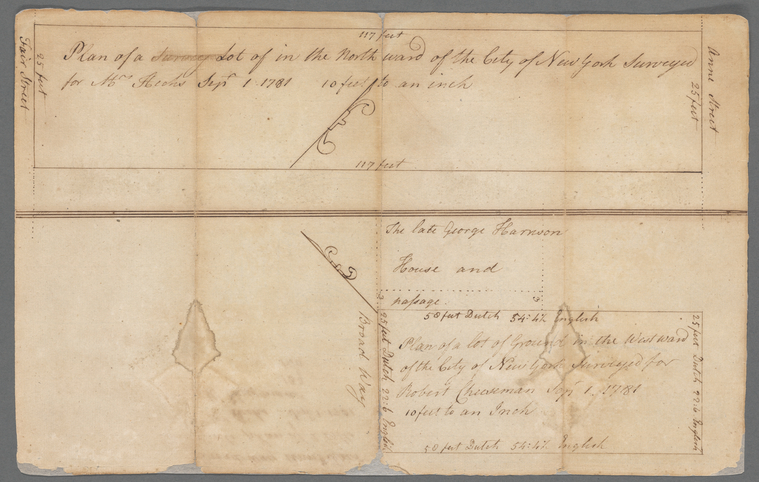 117 feet
Fair Street
25 feet
Plan of a Survey Lot of in the North ward of the City of New York Surveyed
for Mrs Hicks Sepr 1. 1781 10 feet to an inch
25 feet
Anne Street
117 feet
The late George Harrison
House and
passage. 3
3
50 feet Dutch 54:4½ English
Broad Way
25 feet Dutch 22:6 English
Plan of a lot of Ground in the West ward
of the City of New York Surveyed for
Robert Cheeseman Sepr 1. 1781
10 feet to an Inch
25 feet Dutch 22:6 English
50 feet Dutch 54:4½ English